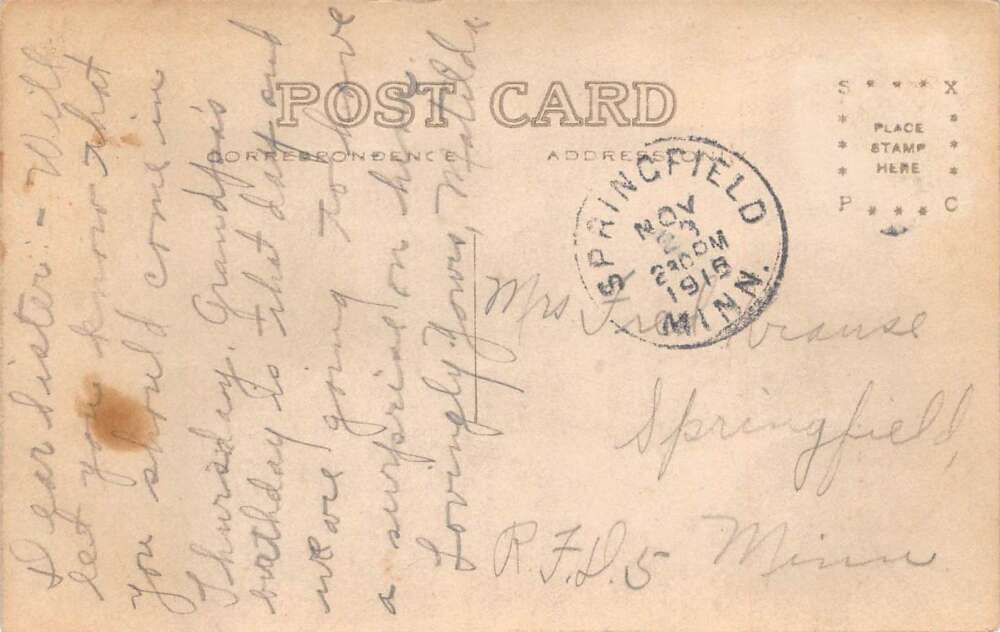 POST CARD
CORRESPONDENCE
ADDRESS ONLY
S X
PLACE
STAMP
HERE
P C
SPRINGFIELD
NOV
3
230PM
MINN.
Dear Sister:- Will
let you know that
you should come in
Thursday. Grandpa's
birthday is that day and
we are going to have
a surprise on him
Lovingly Yours, Matilda
Mrs Fred Krause
Springfield,
R.F.D. 5 Minn